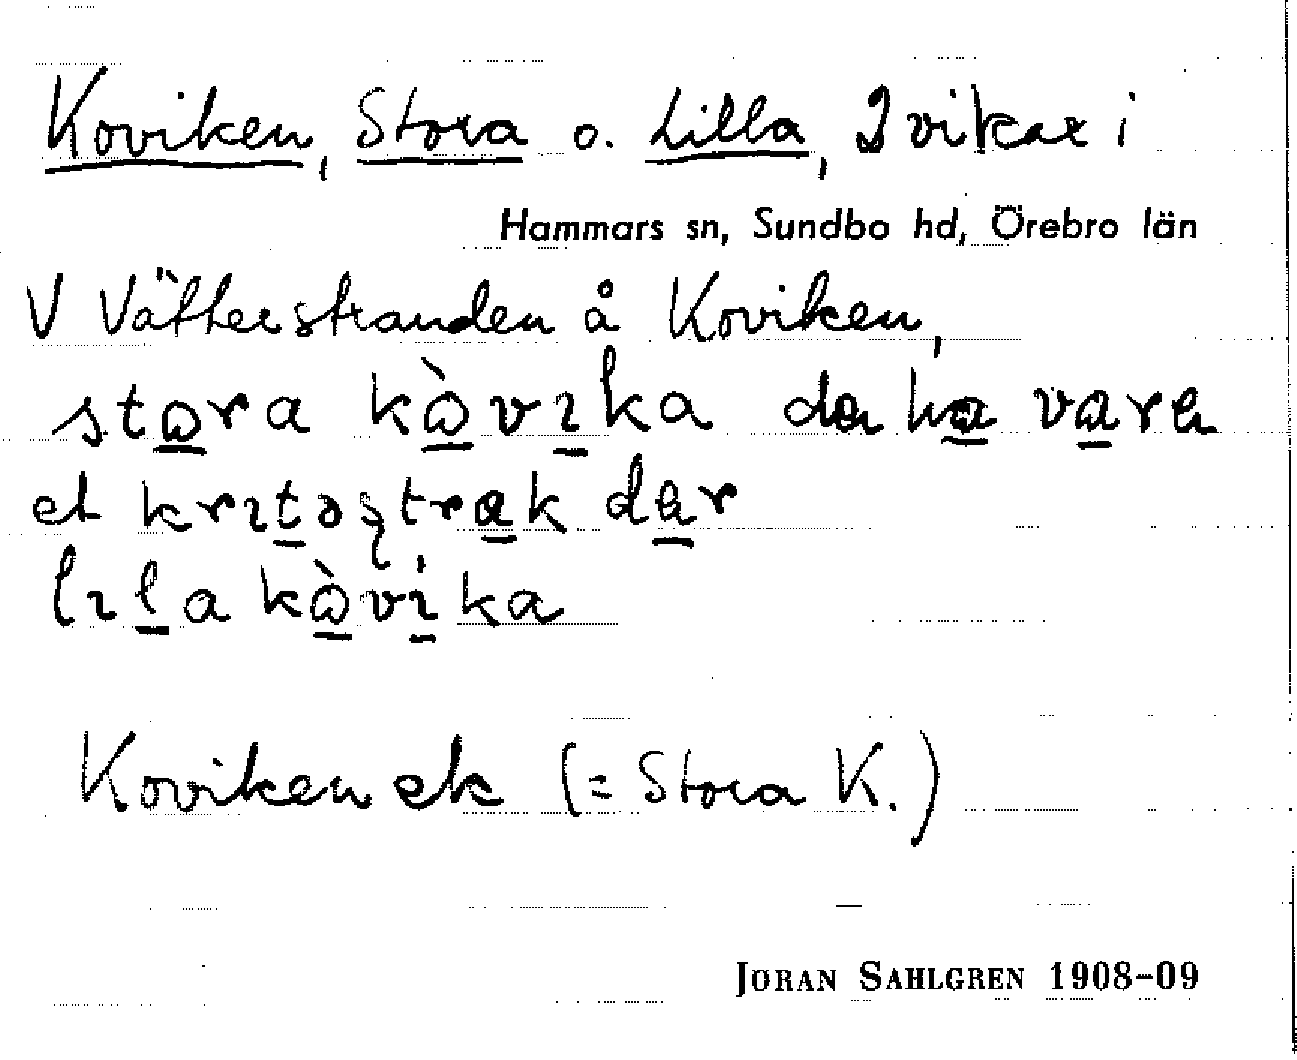 Koviken, Stora o. Lilla, 2 vikar i
Hammars sn, Sundbo hd, Örebro län
V Vätterstranden å Koviken,
stora kòvika da ha vare
et krɪtəʂtrak dar
lɪla kòvika
Koviken ek (= Stora K.)
JORAN SAHLGREN 1908-09